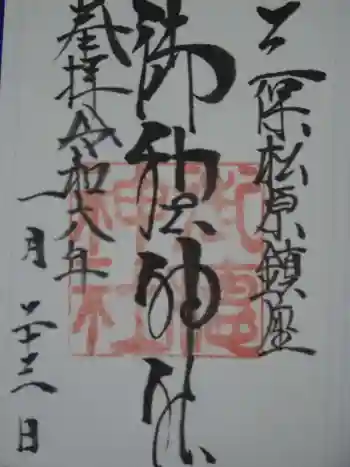 三保松原鎮座
御穂神社
奉拝 令和六年
一月 二十三日